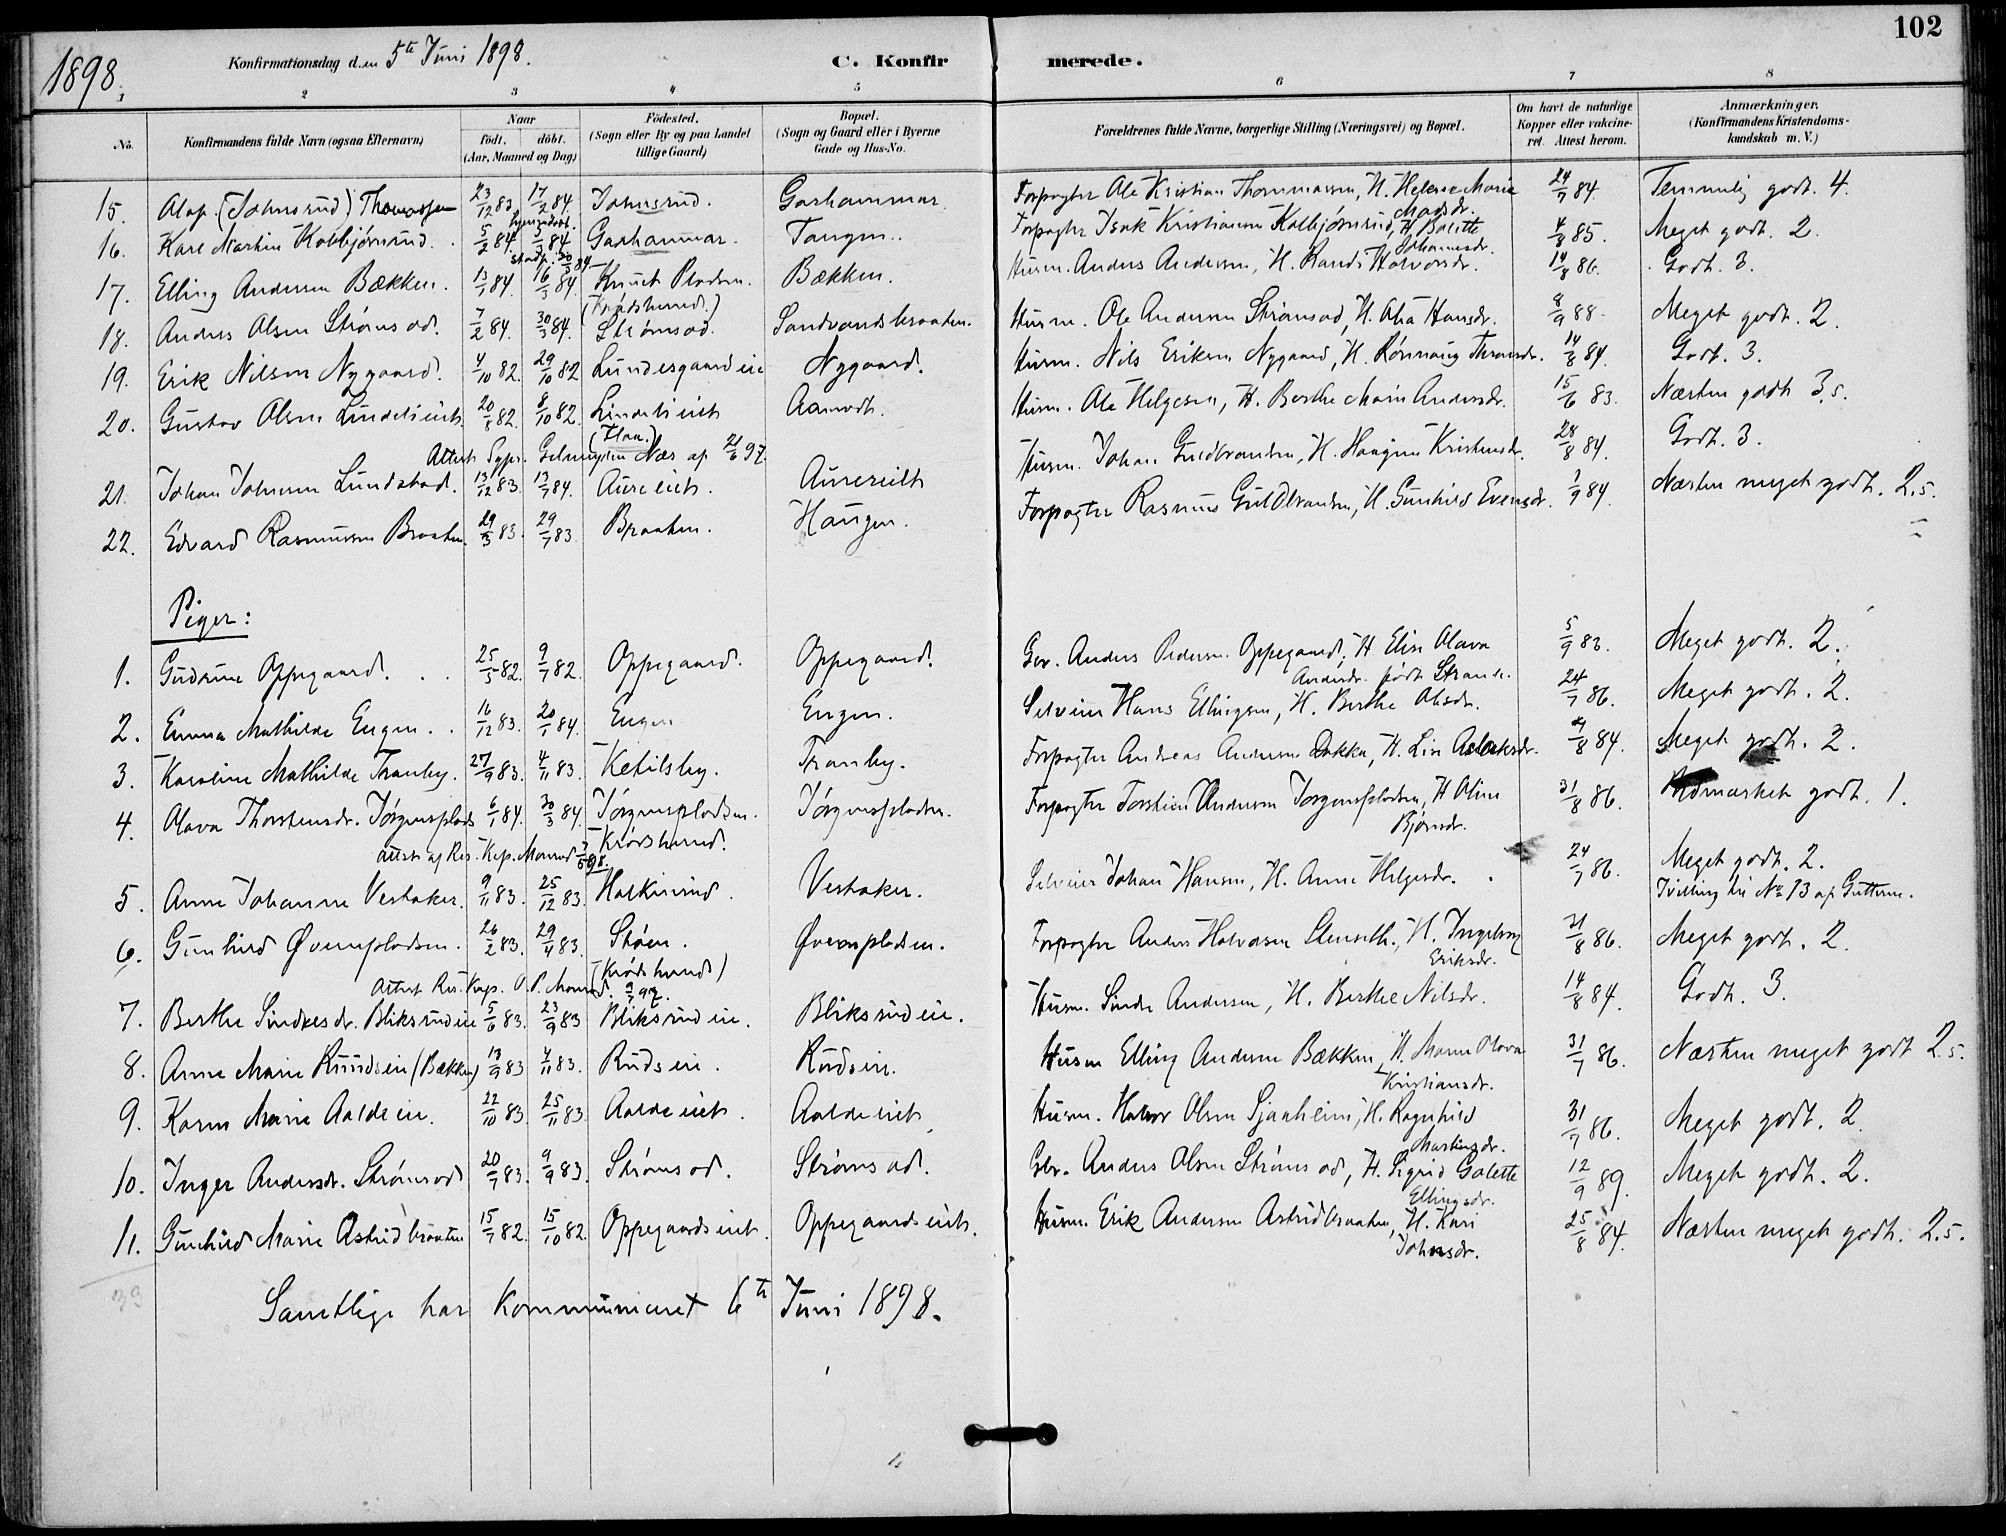 102
1898.
Konfirmationsdag den 5te Juni 1898.
C. Konfirmerede.
1 2 3 4 5 6 7 8
No.
Konfirmandens fulde Navn (ogsaa Efternavn)
Naar
födt. döbt.
(Aar, Maaned og Dag)
Födested.
(Sogn eller By og paa Landet
tillige Gaard)
Bopæl.
(Sogn og Gaard eller i Byerne
Gade og Hus-No.
Forældrenes fulde Navne, borgerlige Stilling (Næringsvei) og Bopæl.
Om havt de naturlige
Kopper eller vakcine-
ret. Attest herom.
Anmærkninger.
(Konfirmandens Kristendoms-
kundskab m. V.)
15. Olaf (Johnsrud) Thomassen 23/12 83. 17/2 84. Johnsrud. Garhammar. Forpagter Ole Kristian Thommassen, H. Helene Marie Madsdr. 24/7 84. Temmelig godt. 4.
hjemmedøbt.
16. Karl Martin Kolbjørnsrud. 5/2 84. 3/3 84 Garhammar. Tangen. Forpagter Isak Kristiansen Kolbjørnsrud, H. Bolette Johannesdr. 4/8 85. Meget godt. 2.
stadf. 30/3 84
17. Elling Andersen Bækken. 13/1 84. 16/3 84. Knuts Pladsen. (Krødsherred.) Bækken. Husm. Anders Andersen, H. Randi Halvorsdr. 14/8 86. Godt. 3.
18. Anders Olsen Strømsod. 7/2 84. 30/3 84. Strømsod. Sandvandsbraaten. Husm. Ole Andersen Strømsod, H. Olia Hansdr. 8/9 88. Meget godt. 2.
19. Erik Nilsen Nygaard. 4/10 82. 29/10 82 Lundesgaardeie Nygaard. Husm. Nils Eriksen Nygaard, H. Rønnaug Thronsdr. 14/8 84. Godt. 3.
20. Gustav Olsen Lindelieiet. 20/8 82. 8/10 82. Lindelieiet (Flaa.) Aamodt. Husm. Ole Helgesen, H. Berthe Marie Andersdr. 15/6 83. Næsten godt 3.5.
Attest Sgpr. Gelmuyden Næs af 21/6 97.
21. Johan Johansen Lundstad. 13/12 83. 13/7 84. Aureeiet. Aureeiet Husm. Johan Guldbrandsen, H. Hangine Kristensdr. 28/8 84. Godt. 3.
22. Edvard Rasmussen Braaten. 29/3 83. 29/7 83. Braaten. Haugen. Forpagter Rasmus Guldbrandsen, H. Gunhild Evensdr. 1/9 84. Næsten meget godt. 2.5.
Piger:
1. Gudrune Oppegaard. 25/5 82. 9/7 82. Oppegaard. Oppegaard. Gbr. Anders Pedersen Oppegaard, H. Elise Olava Andersdr. født Strande. 5/9 83. Meget godt. 2.
2. Emma Mathilde Engen. 16/12 83. 20/1 84. Engen Engen. Selveier Hans Ellingsen, H. Berthe Olsdr. 24/7 86. Meget godt. 2.
3. Karoline Mathilde Tranby. 27/9 83. 4/11 83. Ketilsby. Tranby. Forpagter Andreas Andersen Dokka, H. Lise Aslaksdr. 4/8 84. Meget godt. 2.
4. Olava Thorstensdr. Jørgensplads 6/1 84. 30/3 84. Jørgenspladsen. Krødsherred. Jørgenspladsen. Forpagter Torstein Andersen Jorgenspladsen, H. Oline Bjørnsdr. 31/8 86. Udmærket godt. 1.
attest af Res. Kap. Monrad 3/6 98.
5. Anne Johanne Vestaker. 9/11 83. 25/12 83. Halkinrud. Vestaker. Selveier Johan Hansen, H. Anne Helgesdr. 24/7 86. Meget godt. 2.
Tvilling til No 13 af Gutterne.
6. Gunhild Øvernpladsen. 26/2 83. 29/4 83. Støen. (Krødsherred) Øvernpladsen. Forpagter Anders Halvorsen Stenseth, H. Ingeborg Eriksdr. 21/8 86. Meget godt. 2.
Attest Res. Kap. O. P. Monrad. 2/7 97.
7. Berthe Sindresdr. Bliksrudeie 5/6 83. 23/9 83 Bliksrudeie. Bliksrudeie. Husm. Sindre Andersen, H. Berthe Nilsdr. 14/8 84. Godt. 3.
8. Anne Marie Ruudseie (Bækken) 13/9 83 4/11 83. Rudseie. Rudseie. Husm Elling Andersen Bækken, H. Maren Olava Kristiansdr. 31/7 86. Næsten meget godt 2.5.
9. Karen Marie Aaldeeie. 22/10 83. 25/11 83. Aaldeeiet. Aaldeeiet Husm. Halvor Olsen Sjaaheim, H. Ragnhild Mortensdr. 31/7 86. Meget godt. 2.
10. Inger Andersdr. Strømsod 20/7 83. 9/9 83. Strømsod. Strømsod. Gbr. Anders Olsen Strømsod, H. Sigrid Golette Ellingsdr. 12/9 89. Meget godt. 2.
11. Gunhild Marie Astridbraaten 15/7 82. 15/10 82. Oppegaardseiet. Oppegaardseiet. Husm. Erik Andersen Astridbraaten, H. Kari Johnsdr. 25/8 84. Næsten meget godt. 2.5.
33
Samtlige har kommuniceret 6te Juni 1898.